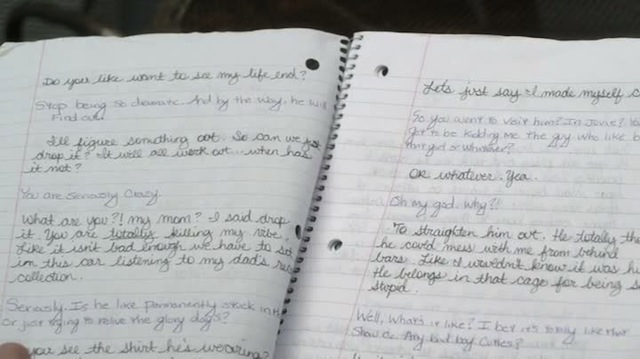 Do you like want to see my life end?
Stop being so dramatic. And by the way, he will
Find out.
I'll figure something out. So can we just
drop it? It will all work out... when has
it not?
You are seriously crazy.
What are you?! my mom? I said drop
it. You are totally killing my vibe.
Like it isn't bad enough we have to sit
in this car listening to my dad's
collection.
Seriously. Is he like permanently stuck in
Or just trying to relive the glory days?
you see the shirt he's wearing?
Lets just say I made myself
So you went to visit him? In Juvie? You
got to be kidding me. The guy who like
your girl or whatever?
OK whatever. Yea.
Oh my god. why?!
To straighten him out. He totally
he could mess with me from behind
bars. Like I wouldn't know it was
He belongs in that cage for being so
stupid.
Well, what's it like? I bet it's totally like that
Show Oz. Any bad boy cuties?